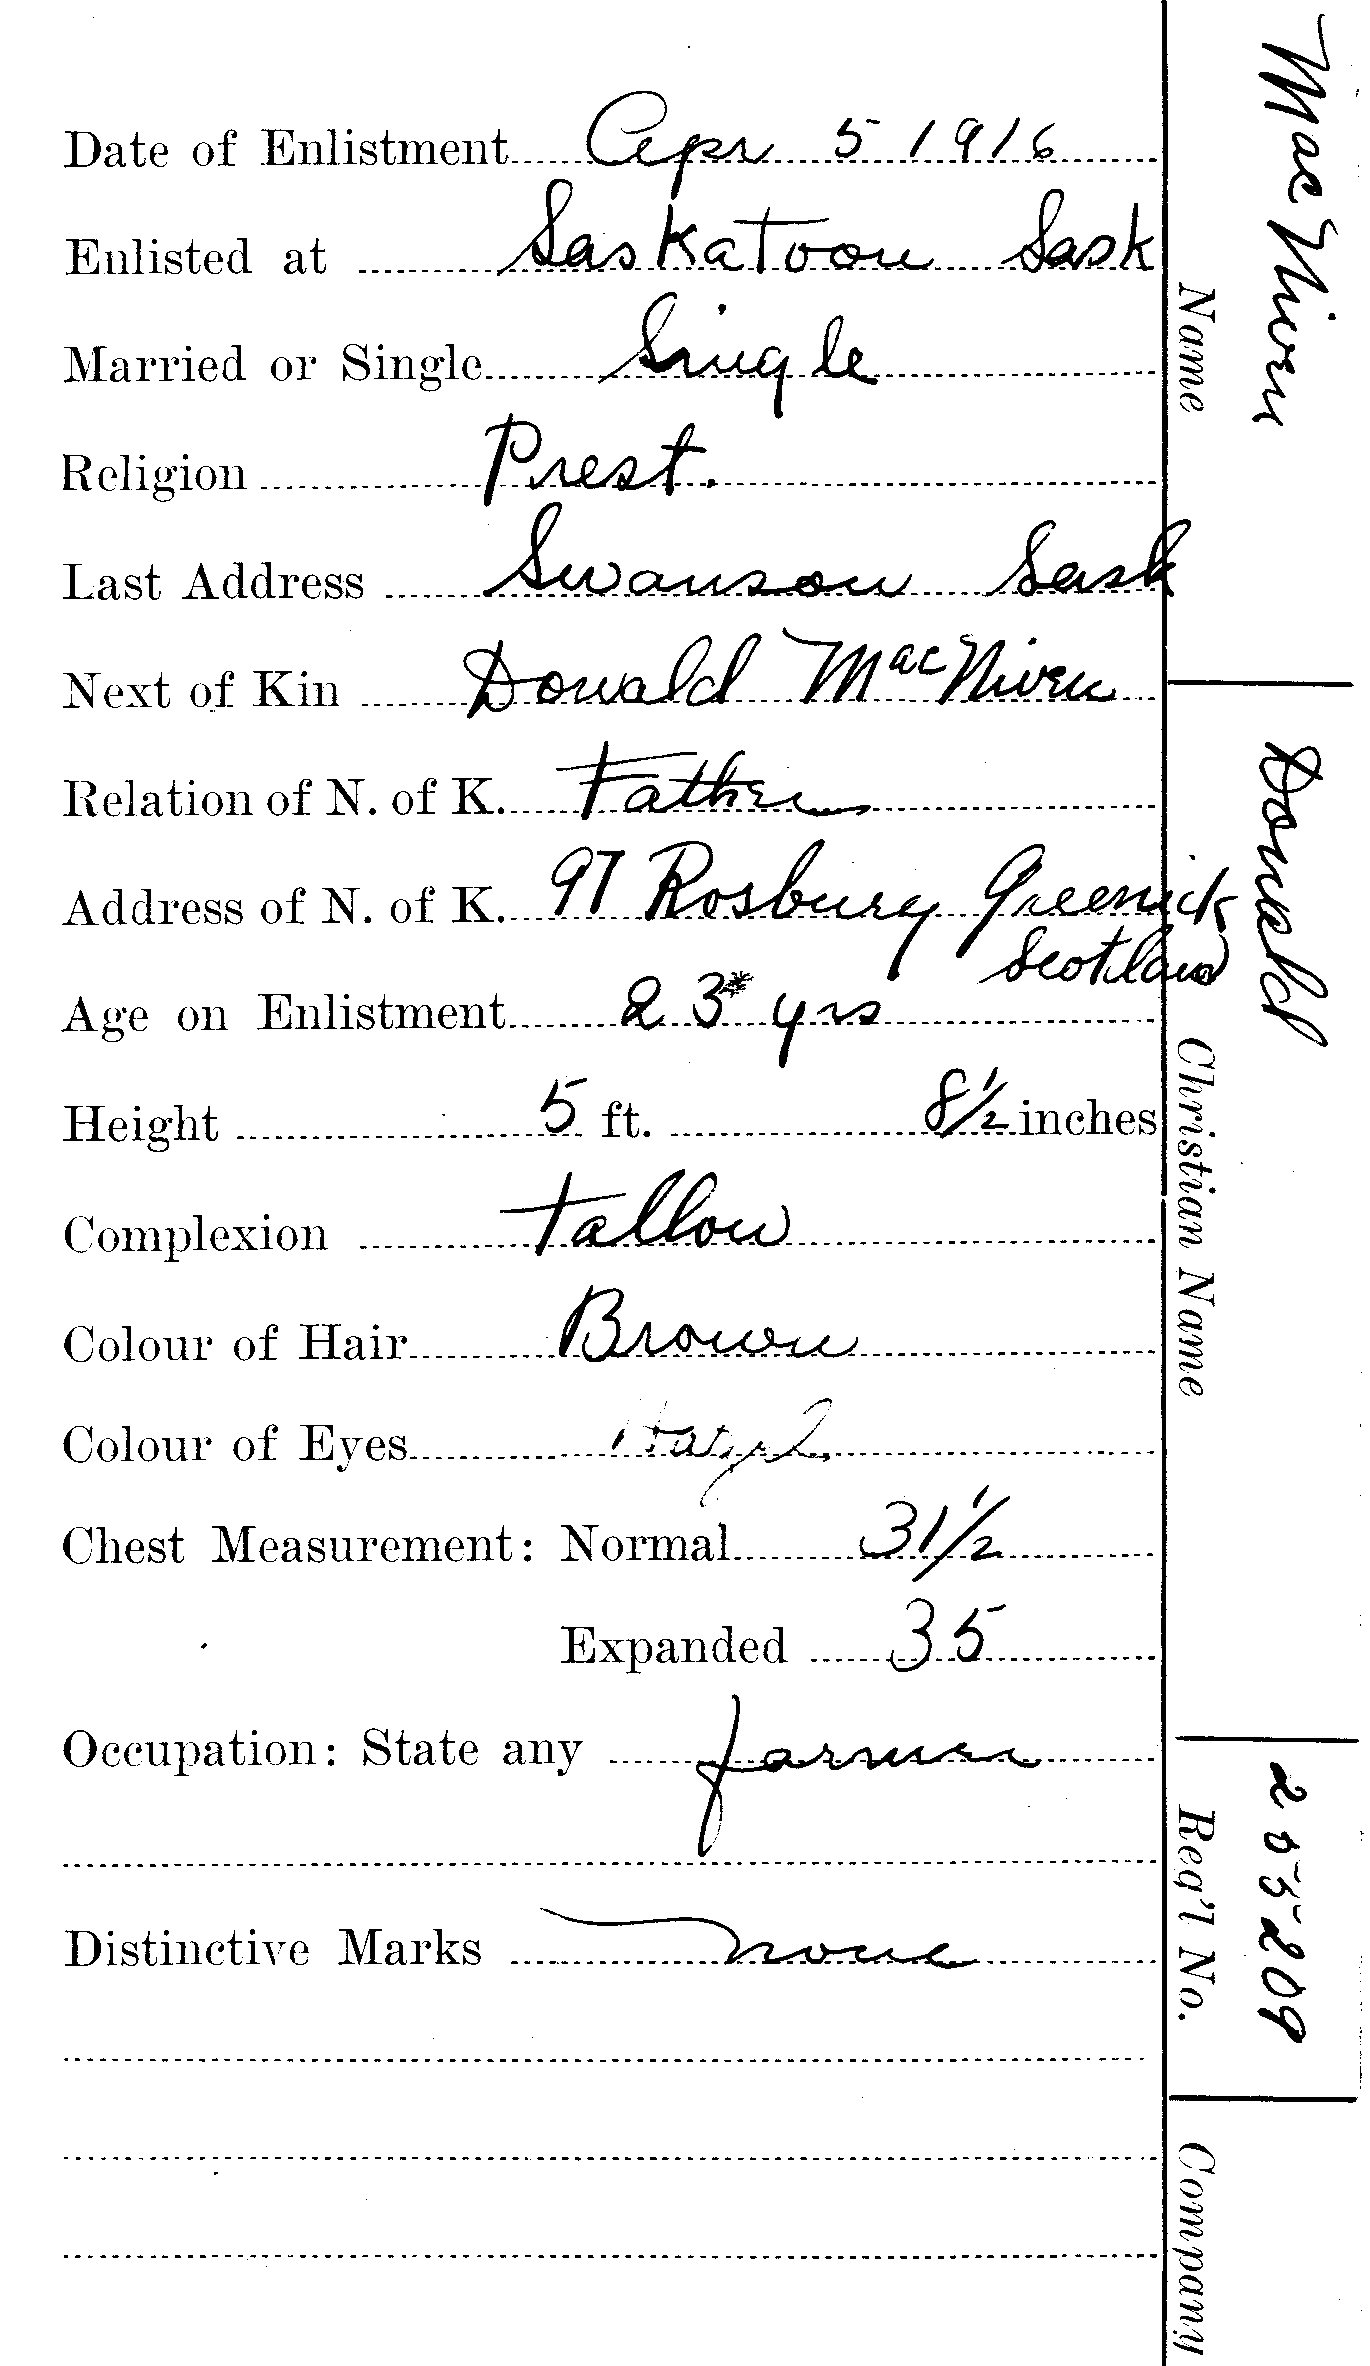 Date of Enlistment Apr 5 1916
Enlisted at Saskatoon Sask
Married or Single Single
Religion Prest.
Last Address Swanson Sask
Next of Kin Donald MacNiven
Relation of N. of K. Father
Address of N. of K. 97 Rosbury Greenick
Scotland
Age on Enlistment 23 yrs
Height 5 ft. 8½ inches
Complexion Tallow
Colour of Hair Brown
Colour of Eyes Hazel
Chest Measurement: Normal 31½
Expanded 35
Occupation: State any farmer
Distinctive Marks none
MacNiven
Name
Donald
Christian Name
255209
Reg'l No.
Company